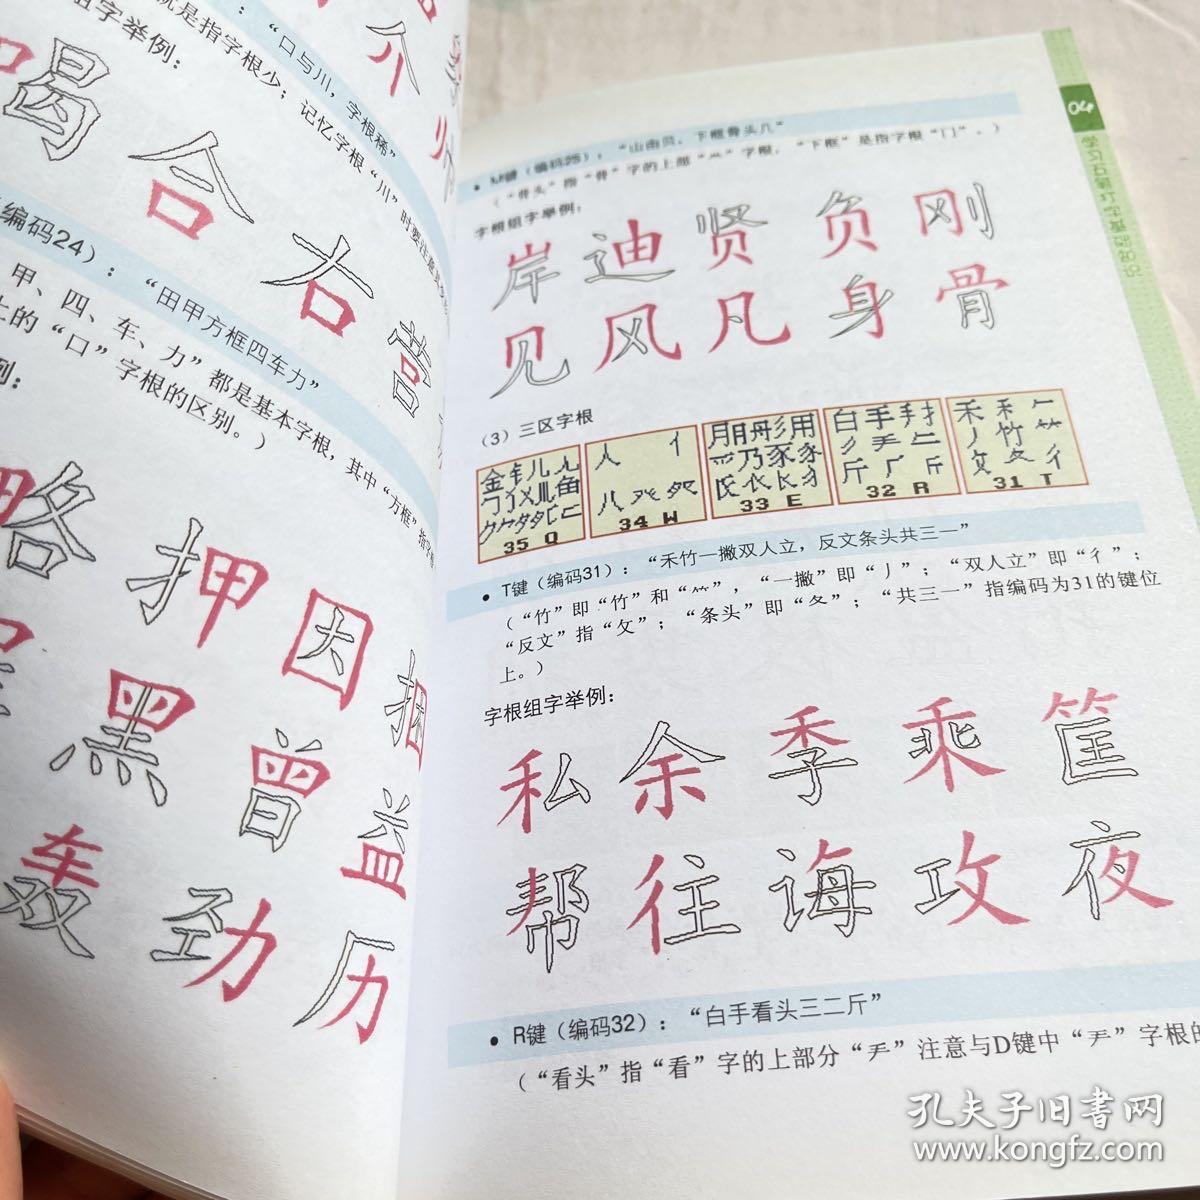 ：“口与川，字根稀”
就是指字根少；记忆字根“川”时要注意
组字举例：
合
右
营
编码24）：“田甲方框四车力”
甲、四、车、力”都是基本字根，其中“方框”指
上的“口”字根的区别。）
例：
略 押 因 捆
黑 曾 益
轰 劲 历
04
学习五笔打字基础知识
• M键（编码25）：“山由贝，下框骨头几”
（“骨头”指“骨”字的上部“⺫”字根，“下框”是指字根“冂”。）
字根组字举例：
岸 迪 贤 负 刚
见 风 凡 身 骨
（3）三区字根
35 Q
34 W
33 E
32 R
31 T
• T键（编码31）：“禾竹一撇双人立，反文条头共三一”
（“竹”即“竹”和“⺮”，“一撇”即“丿”；“双人立”即“彳”；
“反文”指“攵”；“条头”即“夂”；“共三一”指编码为31的键位
上。）
字根组字举例：
私 余 季 乘 筐
帮 往 诲 攻 夜
• R键（编码32）：“白手看头三二斤”
（“看头”指“看”字的上部分“龵”注意与D键中“𠂇”字根的
孔夫子旧书网
www.kongfz.com